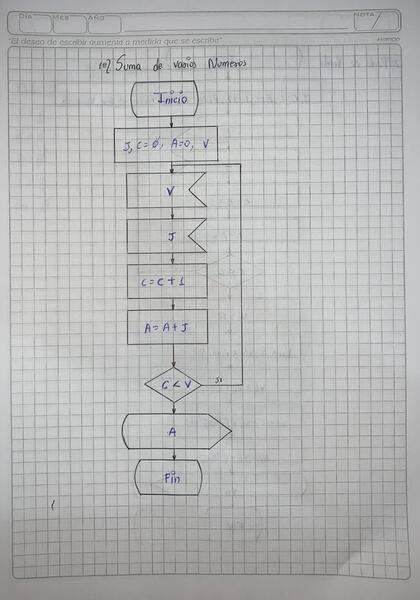 DIA MES AÑO NOTA
"El deseo de escribir aumenta a medida que se escribe"
10) Suma de varios Numeros
Inicio
J, C=0, A=0, V
V
J
C=C+1
A=A+J
C<V
Si
A
Fin